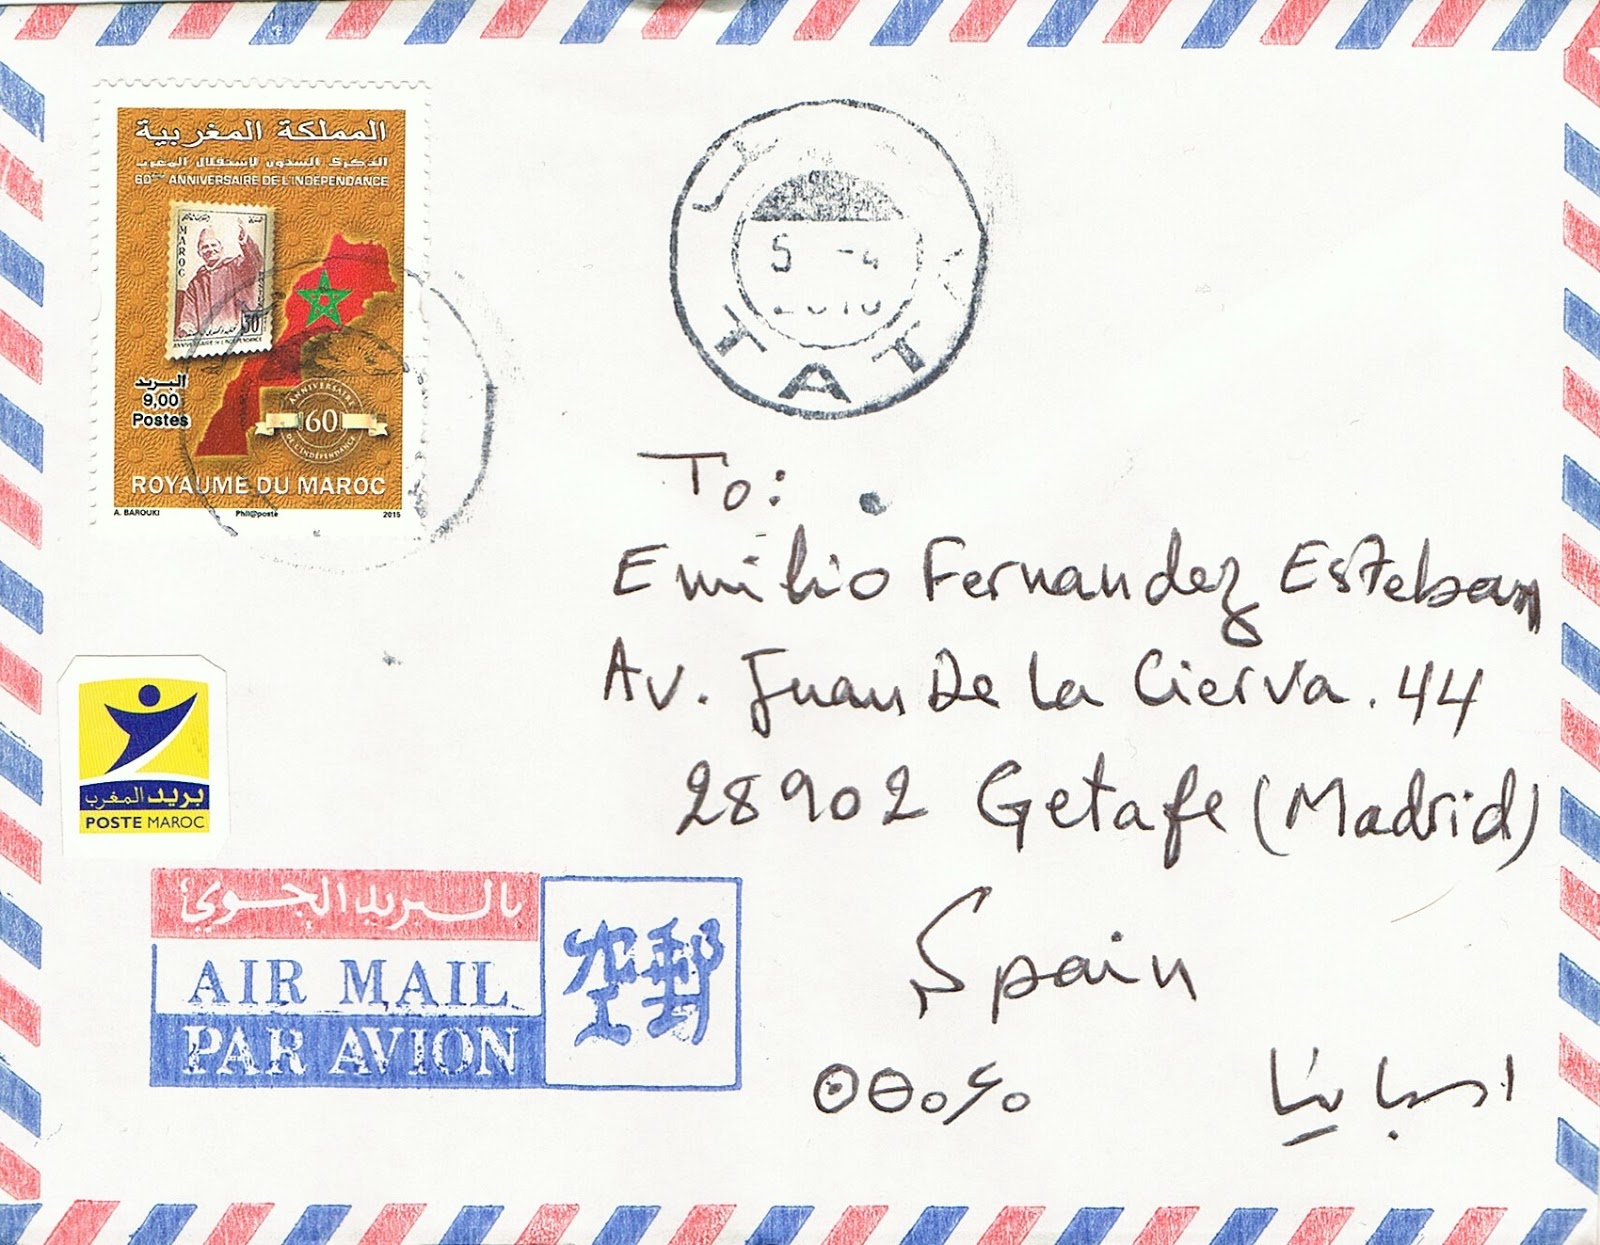 المملكة المغربية
الذكرى الستون لاستقلال المغرب
60ème ANNIVERSAIRE DE L'INDÉPENDANCE
MAROC
30
ANNIVERSAIRE DE L'INDÉPENDANCE
البريد
9,00
Postes
ANNIVERSAIRE
60
DE L'INDÉPENDANCE
ROYAUME DU MAROC
A. BAROUKI Phil@poste 2015
5 -4
TATA
To:
Emilio Fernandez Esteban
Av. Juan De La Cierva. 44
28902 Getafe (Madrid)
Spain
ⵙⴱⴰⵢⴰ اسبانيا
بريد المغرب
POSTE MAROC
بالبريد الجوي
AIR MAIL
PAR AVION
空郵